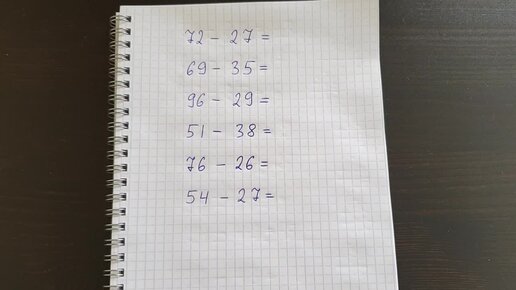 72 - 27 =
69 - 35 =
96 - 29 =
51 - 38 =
76 - 26 =
54 - 27 =